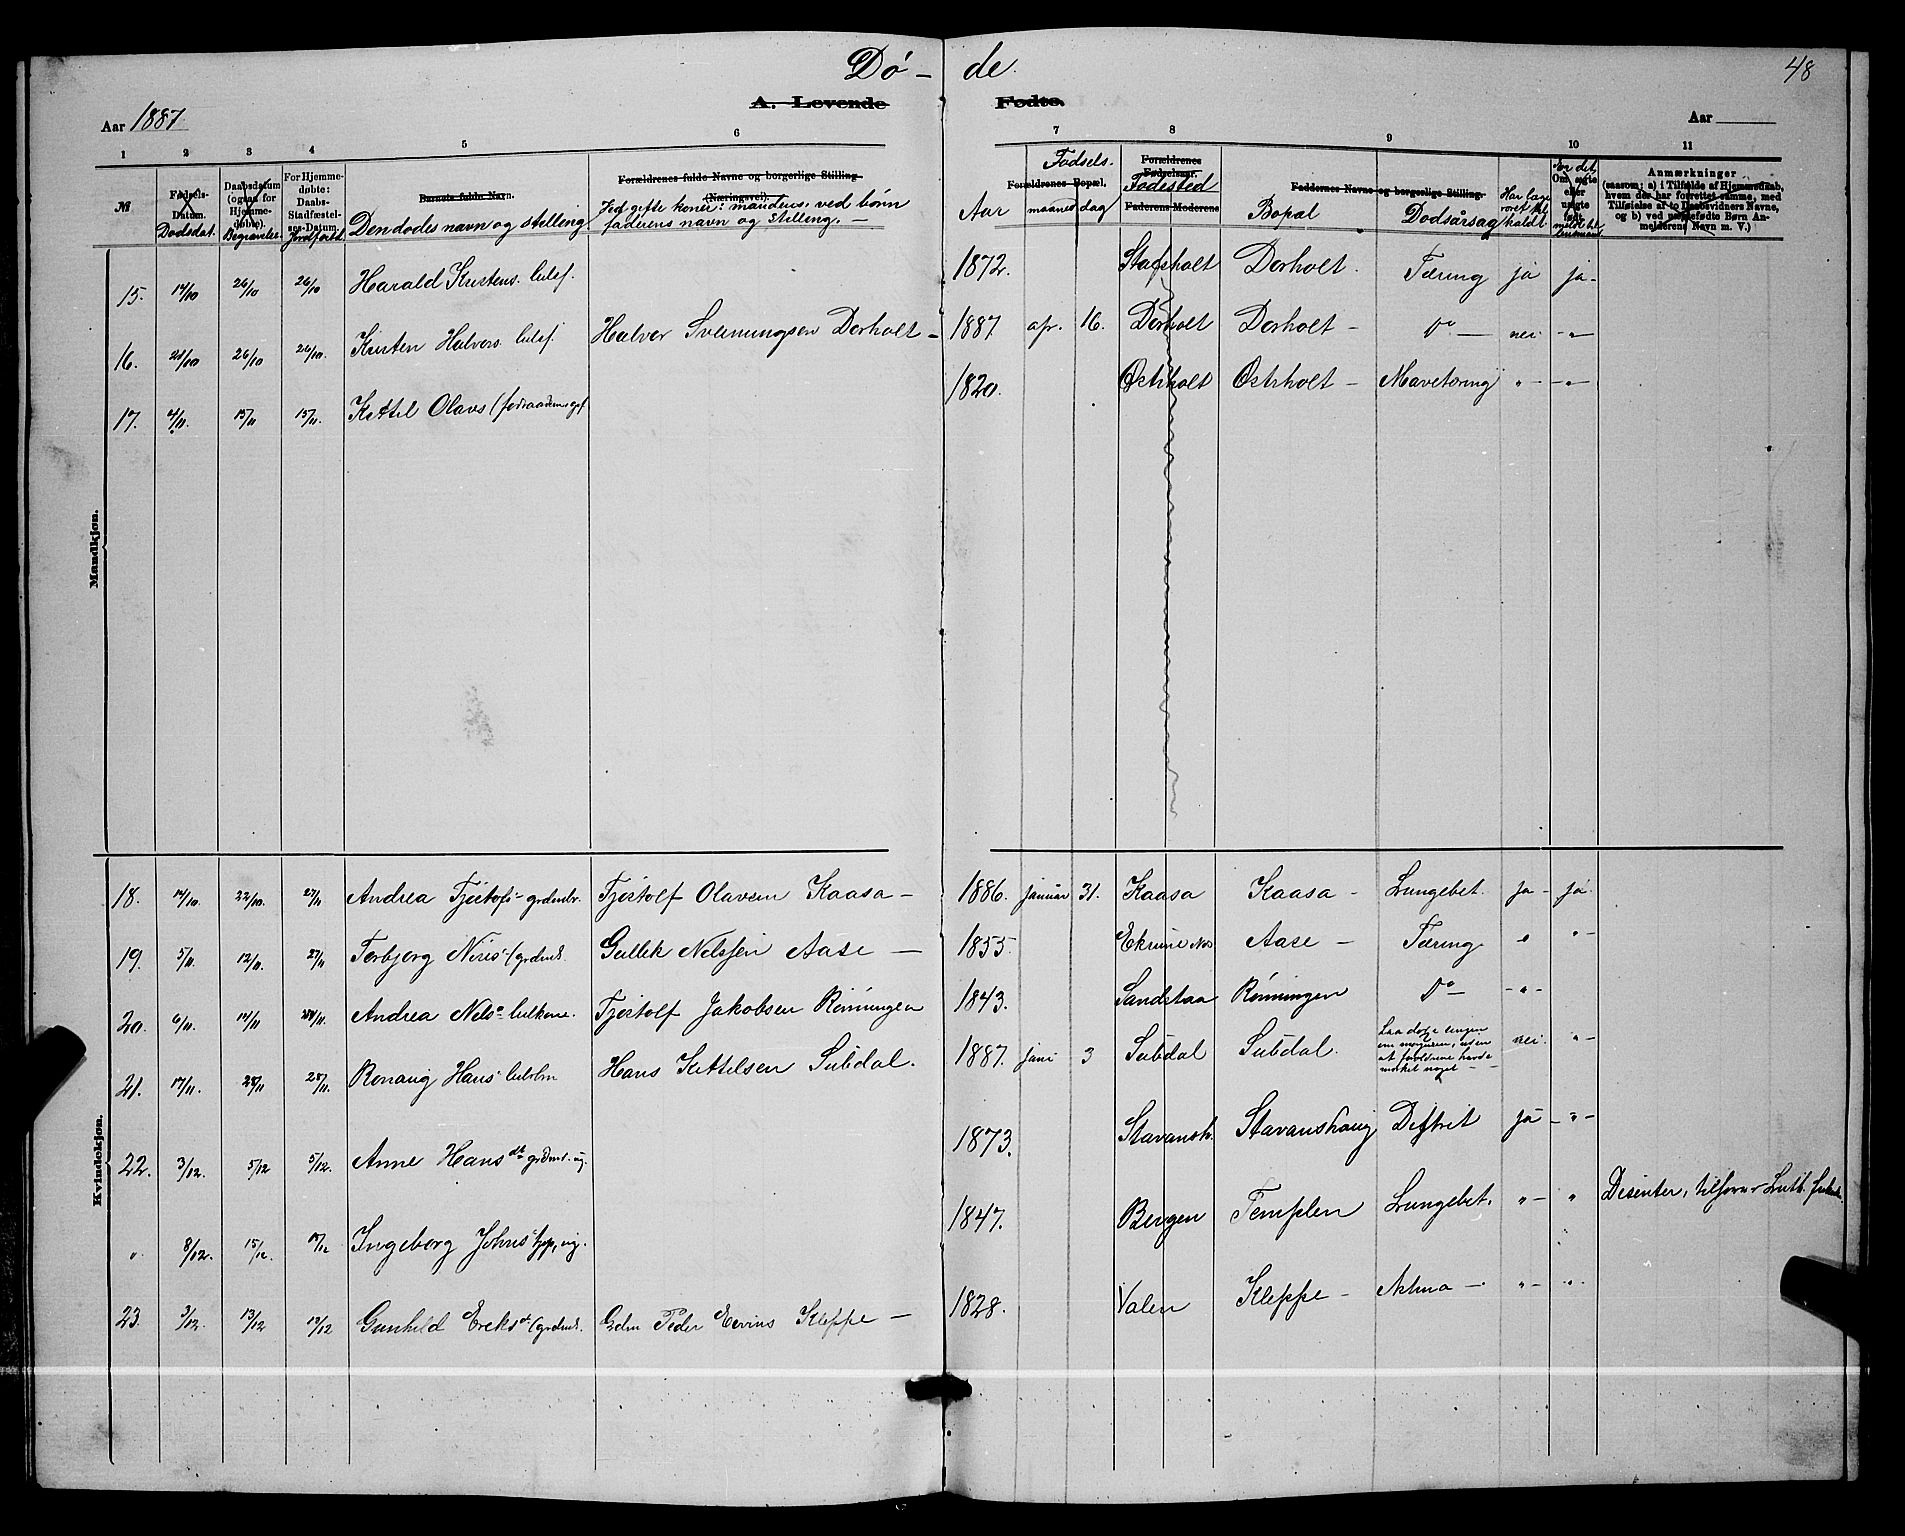 Dø- de.
48
A. Levende Fødte.
Aar 1887
Aar
1 2 3 4 5 6 7 8 9 10 11
№
Fødsels-Datum. Dødsdat.
Daabsdatum (ogsaa for Hjemmedøbte). Begravelse
For Hjemmedøbte: Daabs-Stadfæstelses-Datum. Jordfæstd.
Barnets fulde Navn. Den dødes navn og stilling
Forældrenes fulde Navne og borgerlige Stilling (Næringsvei). Ved gifte koner: mandens, ved børn faderens navn og stilling. —
Fødsels-
Forældrenes Bopæl.
Aar maaned dag
Forældrenes Fødselsaar. Fødested
Faderens Moderens
Bopæl
Faddernes Navne og borgerlige Stilling. Dødsårsag
Har læge været tilkaldt
Om ægte eller uægte født.
Anmærkninger
(saasom: a) i Tilfælde af Hjemmedaab, hvem der har forrettet samme, med Tilføielse af to Daabsvidners Navne, og b) ved uægtefødte Børn Anmelderens Navn m. V.)
Mandkjøn.
15. 14/10 26/10 26/10 Harald Kristens. 1872. Dorholt. Tæring ja ja-
16. 26/10 26/10 Kristen Halvors. Halvor Sveinungsen Dorholt - 1887 apr. 16. Dorholt Dorholt - Do - nei -„-
17. 4/11. 15/11 15/11. Kittil Olavs 1820. Østrholt Østrholt - Mavetæring „- -„-
Kvindekjøn.
18. 14/10. 22/10. 27/11 Andrea Tjostofs- Tjostolf Olavsen Kaasa - 1886. januar 31. Kaasa Kaasa - Lungebet. ja - ja.
19. 5/11. 12/11. 27/11 Torbjorg Gullik Nelssen Aase — 1855. Aase - Tæring „ „-
20. 6/11. Andrea Nels Tjostolf Jakobsen Rönningen 1843. Sandstaa Rönningen Do - -„-
21. 17/11. Ronaug Hans Hans Kittilsen Subdal. 1887. juni 3 Subdal Subdal. Laa død i sengen om morgenen, uden at forældrene havde mærket noget - nei. „-
22. 3/12. 5/12 5/12. Anne Hans 1873. Stavansh. Stavanshaug Difterit ja - „-
„ 8/12. 15/12. Ingeborg Johns 1847. Bergen Templen Lungebet. „- „ Disenter, tilforn Luth.
23. 3/12. 13/12 Gunhild Ereks Peder Kleppe — 1828. Valen Kleppe - Astma - „- „-